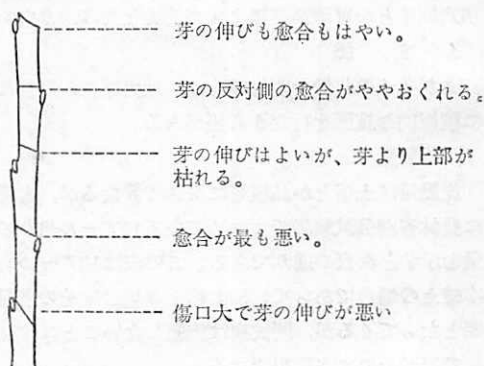 芽の伸びも愈合もはやい。
芽の反対側の愈合がややおくれる。
芽の伸びはよいが、芽より上部が
枯れる。
愈合が最も悪い。
傷口大で芽の伸びが悪い